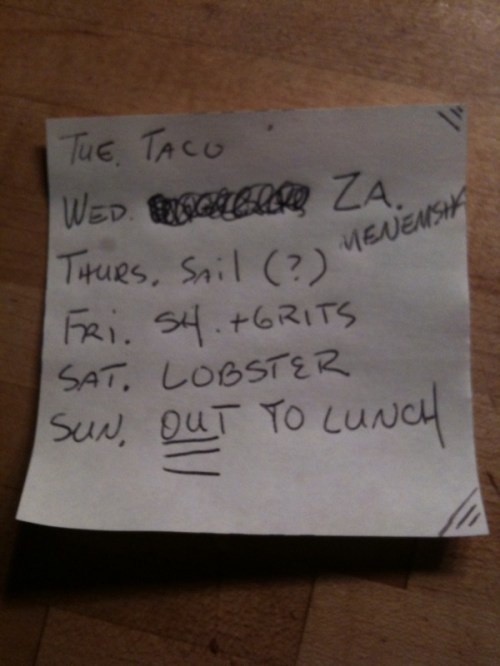 TUE. TACO
WED. ZA.
MENEMSHA
THURS. SAIL (?)
FRI. SH. + GRITS
SAT. LOBSTER
SUN. OUT TO LUNCH